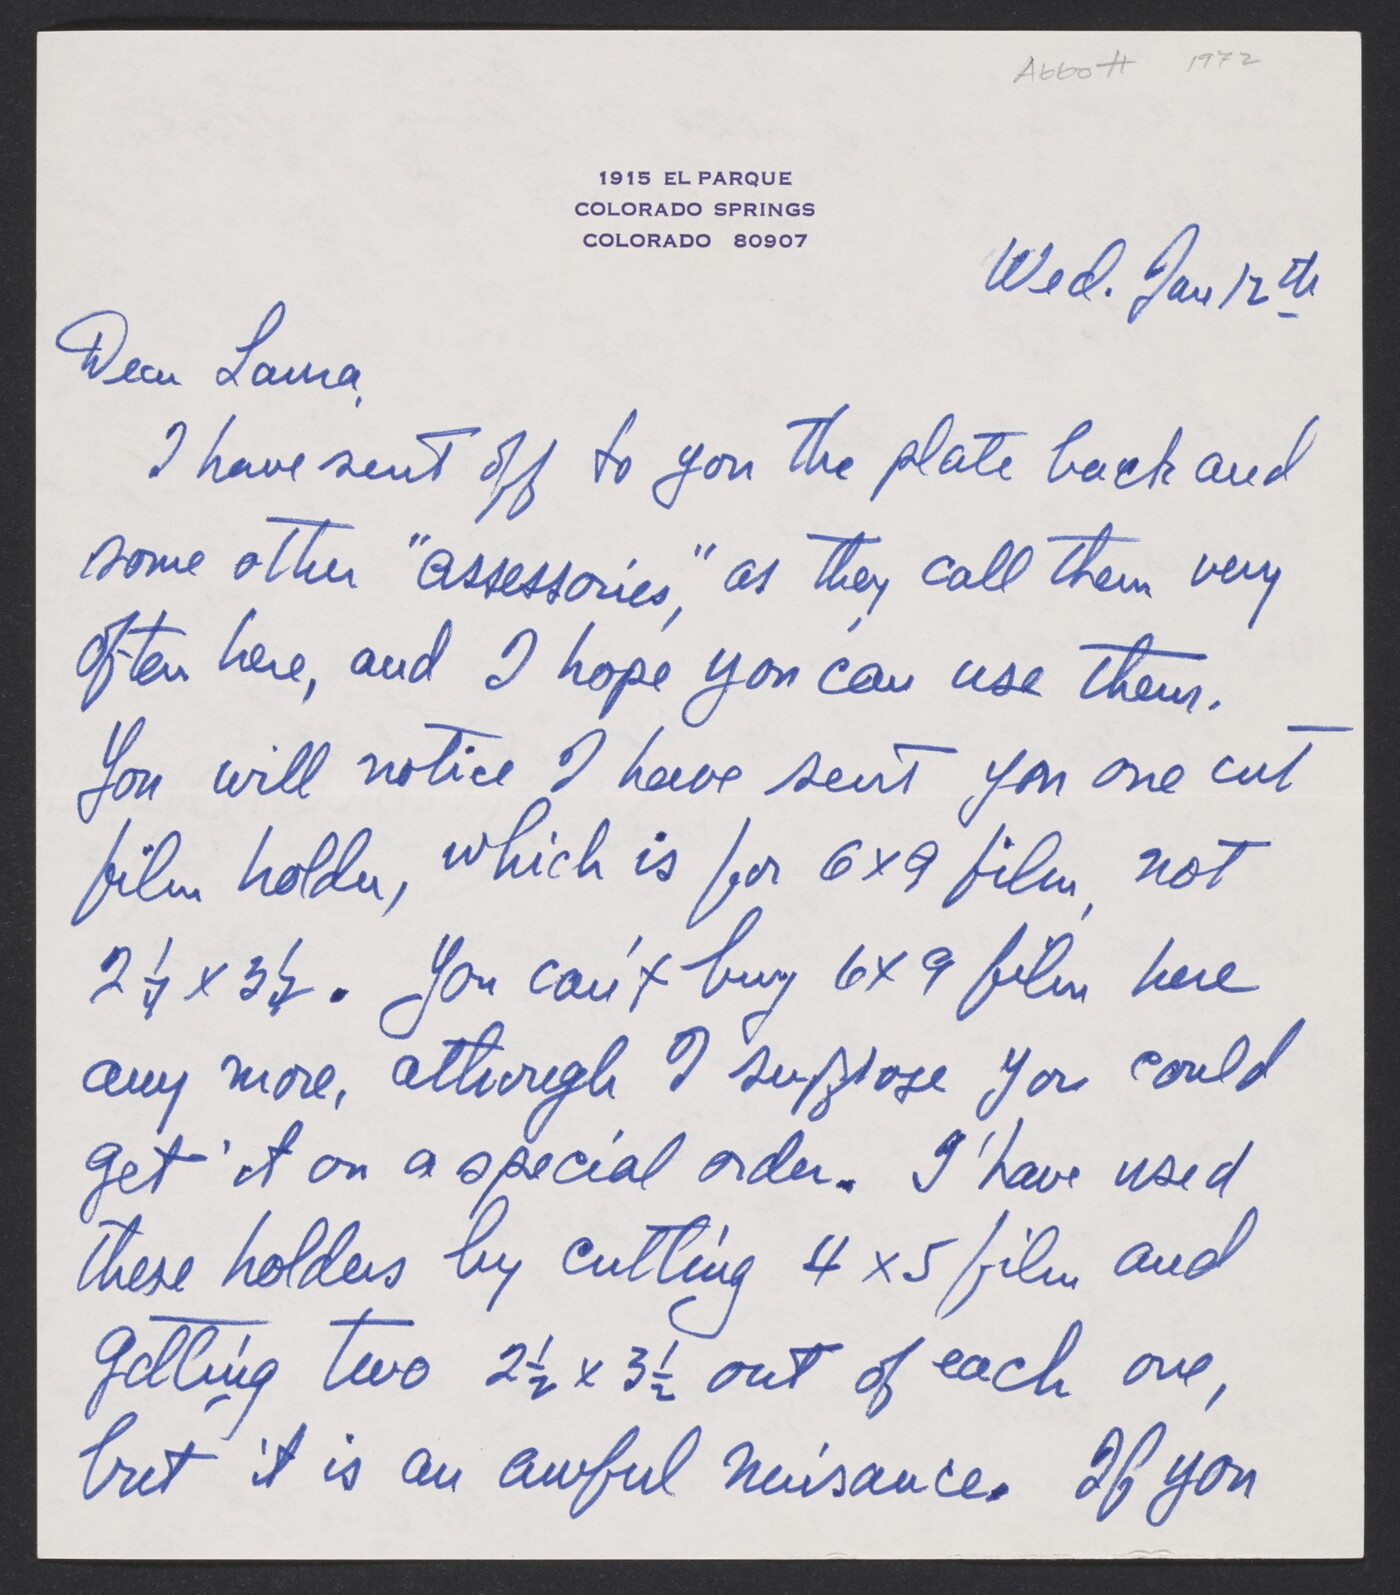 Abbott 1972
1915 EL PARQUE
COLORADO SPRINGS
COLORADO 80907
Wed. Jan 12th
Dear Laura,
I have sent off to you the plate back and
some other "assessories," as they call them very
often here, and I hope you can use them.
You will notice I have sent you one cut
film holder, which is for 6x9 film, not
2¼ x 3½. You can't buy 6x9 film here
any more, although I suppose you could
get it on a special order. I have used
these holders by cutting 4x5 film and
getting two 2½ x 3½ out of each one,
but it is an awful nuisance. If you